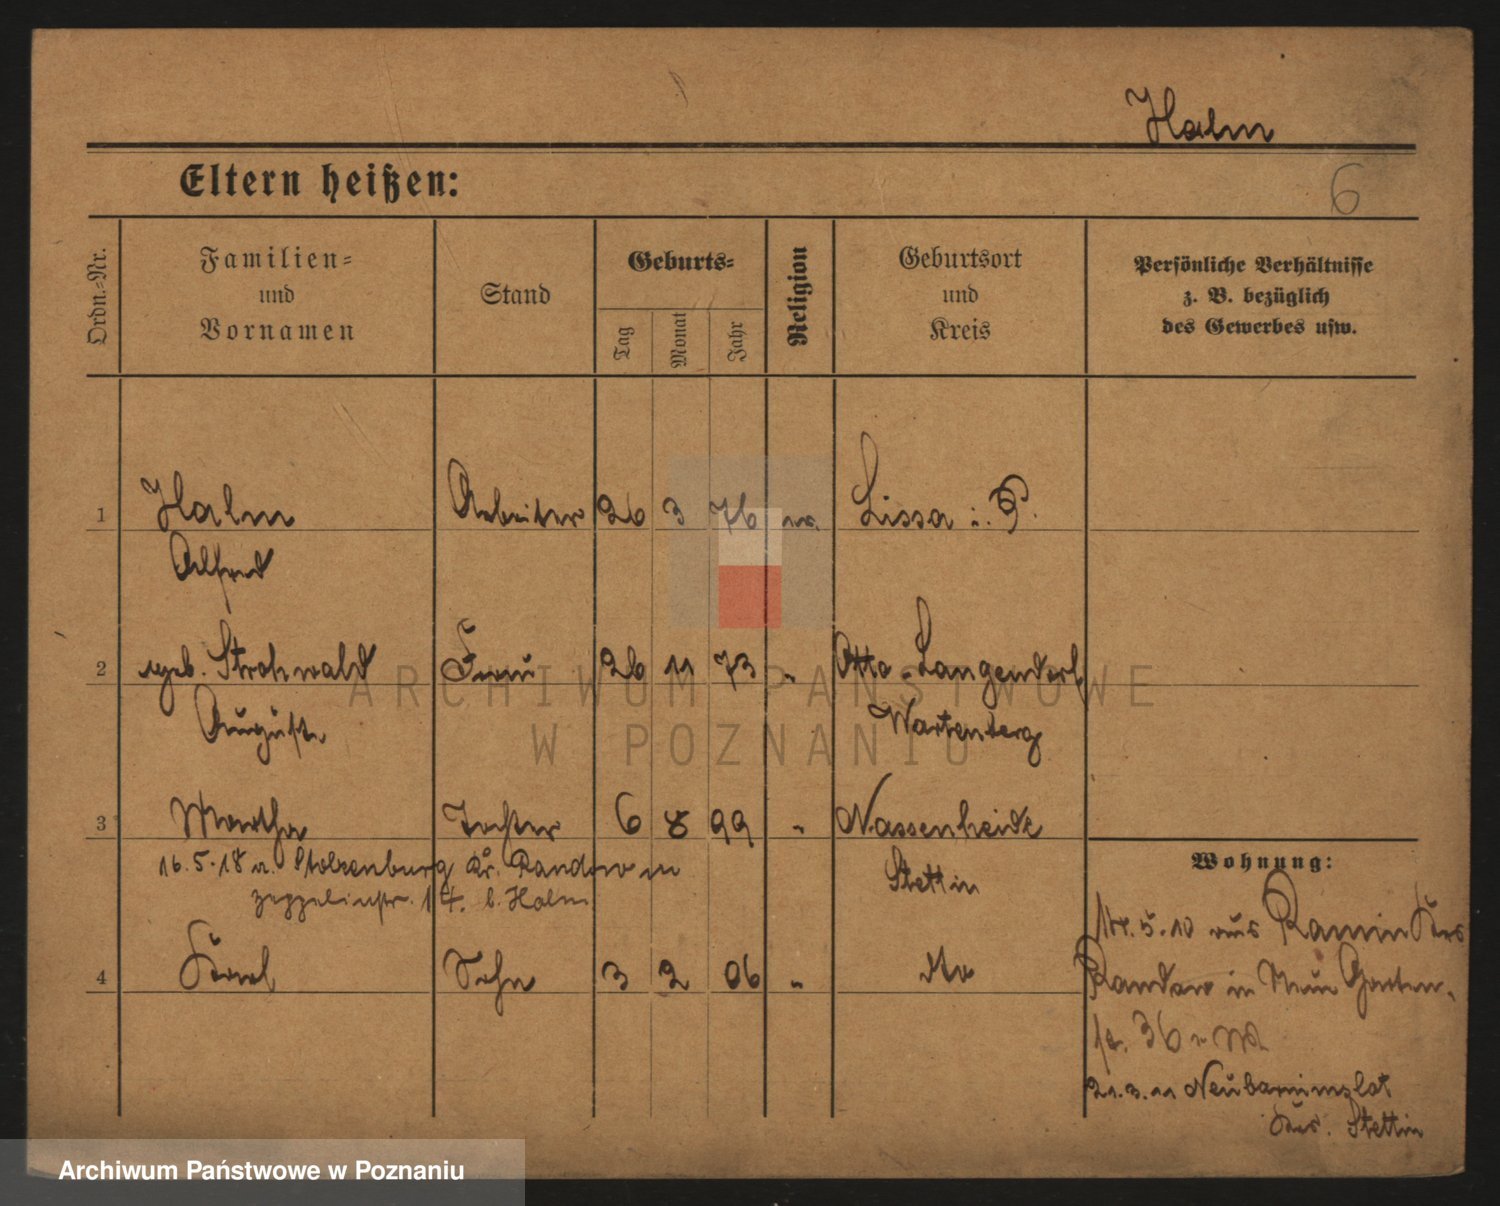 Halm
Eltern heißen:
6
Ordn.-Nr.
Familien-
und
Vornamen
Stand
Geburts-
Tag
Monat
Jahr
Religion
Geburtsort
und
Kreis
Persönliche Verhältnisse
z. B. bezüglich
des Gewerbes usw.
1 Halm Arbeiter 26 3 76 ev. Lissa i. P.
Alfred
2 geb. Strohwald Frau 26 11 73 " Otto-Langendorf
August Wartenberg
3 Martha Tochter 6 8 99 " Nassenheide
Stettin
16.5.18 a. Stolzenburg Kr. Randow in
Zeppelinstr. 14. b. Halm
4 Karl Sohn 3 2 06 " dto
Wohnung:
14.5.10 aus Ramin Krs
Randow in Neue Garten-
str. 36
21.3.11 Neubarnimslot
Krs. Stettin
ARCHIWUM PAŃSTWOWE
W POZNANIU
Archiwum Państwowe w Poznaniu